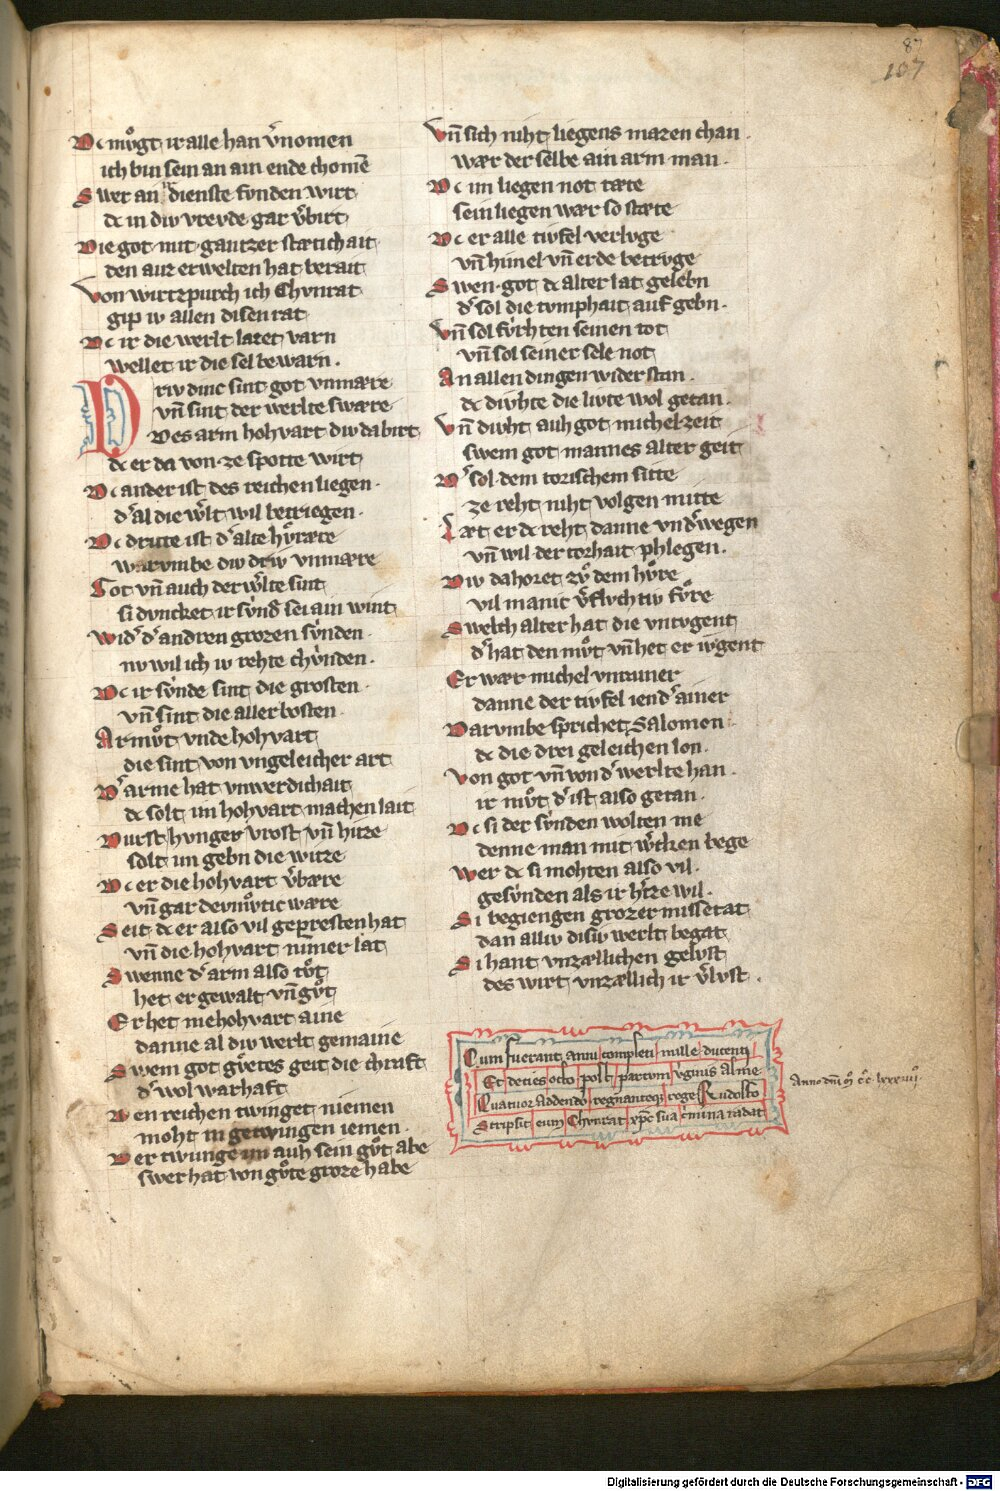 87
107
Dc mvͦgt ir alle han v̄nomen
ich bin sein an ain ende chomē
Swer an dienste fvnden wirt
dc in div vrevde gar v̄birt
Die got mit gantzer stætichait
den auz erwelten hat berait
Von wirtzpurch ich Chvnrat
gip iv allen disen rat
Dc ir die werlt lazet varn
wellet ir die sel bewarn.
Driv dinc sint got vnmære
vn̄ sint der werlte swære
Des arm hohvart div da birt
dc er da von ze spotte wirt
Dc ander ist des reichen liegen.
d' al die w̄lt wil betriegen.
Dc dritte ist d' alte hvͦrære
warvmbe div driv vnmære
Got vn̄ auch der w̄lte sint
si dvncket ir svnd sei ain wint
Wid' d' andren grozen svnden.
nv wil ich iv rehte chvnden.
Dc ir svnde sint die grosten.
vn̄ sint die aller bosten
Armvͦt vnde hohvart
die sint von vngeleicher art
D' arme hat vnwerdichait
dc solt im hohvart machen lait
Durst hvnger vrost vn̄ hitze
solt im gebn die witze
Dc er die hohvart v̄bære
vn̄ gar devmvͦtic wære
Seit dc er also vil gepresten hat
vn̄ die hohvart nimer lat
Swenne d' arm also tvͦt
het er gewalt vn̄ gvͦt
Er het me hohvart aine
danne al div werlt gemaine
Swem got gvͦtes geit die chraft
d' wol warhaft
Den reichen twinget niemen
moht in getwingen iemen.
Der twunge im auh sein gvͦt abe
swer hat von gvͦte groze habe
Vn̄ sich niht liegens mazen chan.
wær der selbe ain arm man.
Dc im liegen not tæte
sein liegen wær so stæte
Dc er alle tivfel verlvge
vn̄ himel vn̄ erde betrvge
Swen got dc alter lat gelebn
d' sol die tvmphait auf gebn.
Vn̄ sol fvrhten seinen tot
vn̄ sol seiner sele not
An allen dingen wider stan.
dc divhte die livte wol getan.
Vn̄ divht auh got michel zeit
swem got mannes alter geit
D' sol dem torischem sitte
ze reht niht volgen mitte
Læt er dc reht danne vnd' wegen
vn̄ wil der torhait phlegen.
Div da horet zvͦ dem hvͦre
vil manic v̄flvchtiv fvͦre
Swelch alter hat die vntvgent
d' hat den mvͦt vn̄ het er ivgent
Er wær michel vntiuner
danne der tivfel iend' ainer
Darvmbe sprichet Salomon
dc die drei geleichen lon.
Von got vn̄ von d' werlte han.
ir mvͦt d' ist also getan.
Dc si der svnden wolten me
denne man mit w̄chen bege
Wer dc si mohten also vil.
gesvnden als ir h'tze wil.
Si begiengen grozer missetat
dan alliv disiv werlt begat
Si hant vnzællichen gelvst
des wirt vnzællich ir v̄lvst.
Cum fuerant anni completi mille ducenti
Et decies octo post partum v̓ginis alme
Quatuor addendo regnanteqз rege Rudolfo
Scripsit eum Chvnrat xp̄c sua c̓mina radat
Anno dn̄i mo cco lxxxiiii
Digitalisierung gefördert durch die Deutsche Forschungsgemeinschaft - DFG